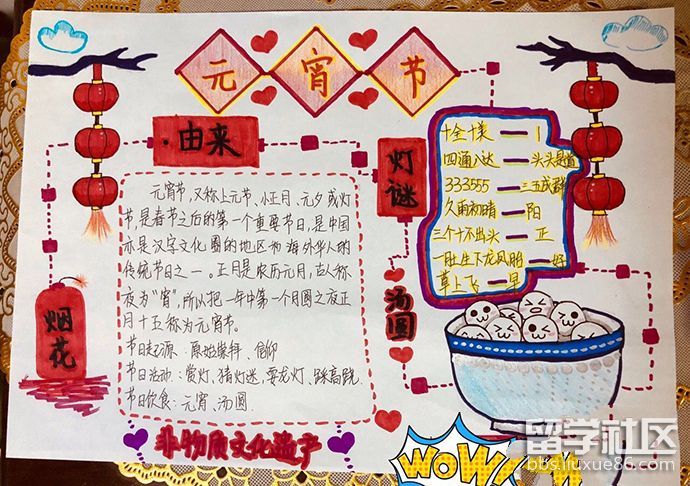 元宵节
由来
元宵节，又称上元节、小正月、元夕或灯
节，是春节之后的第一个重要节日，是中国
亦是汉字文化圈的地区和海外华人的
传统节日之一。正月是农历元月，古人称
夜为"宵"，所以把一年中第一个月圆之夜正
月十五称为元宵节。
节日起源：原始崇拜、信仰
节日活动：赏灯、猪灯迷、耍龙灯、踩高跷
节日饮食：元宵、汤圆
烟花
非物质文化遗产
灯谜
十全十美 — 1
四通八达 — 头头是道
333555 — 三五成群
久雨初晴 — 阳
三个十不出头 — 正
一肚生下龙凤胎 — 好
草上飞 — 早
汤圆
WOW
留学社区
bbs.liuxue86.com